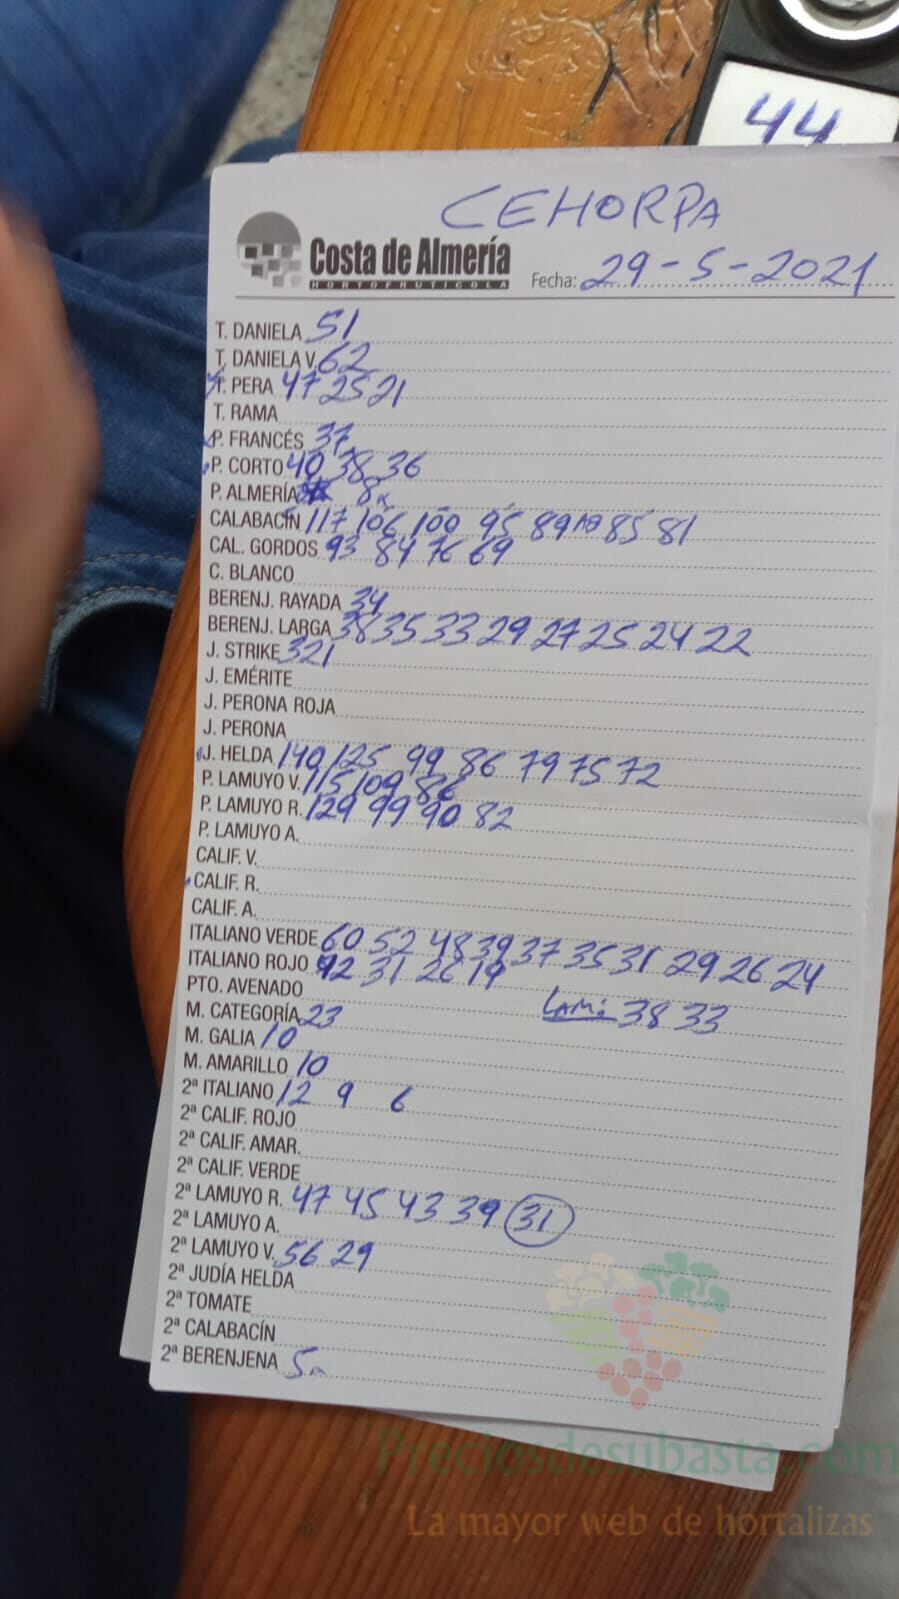 44
CEHORPA
Costa de Almería
HORTOFRUTICOLA
Fecha: 29-5-2021
T. DANIELA 51
T. DANIELA V. 62
T. PERA 47 25 21
T. RAMA
P. FRANCÉS 37
P. CORTO 40 38 36
P. ALMERÍA 8
CALABACÍN 117 106 100 95 89 85 81
CAL. GORDOS 93 84 76 69
C. BLANCO
BERENJ. RAYADA 34
BERENJ. LARGA 38 35 33 29 27 25 24 22
J. STRIKE 321
J. EMÉRITE
J. PERONA ROJA
J. PERONA
J. HELDA 140 125 99 86 79 75 72
P. LAMUYO V. 115 109 86
P. LAMUYO R. 129 99 90 82
P. LAMUYO A.
CALIF. V.
CALIF. R.
CALIF. A.
ITALIANO VERDE 60 52 48 39 37 35 31 29 26 24
ITALIANO ROJO 31 26 19
PTO. AVENADO
LAM: 38 33
M. CATEGORÍA 23
M. GALIA 10
M. AMARILLO 10
2ª ITALIANO 12 9 6
2ª CALIF. ROJO
2ª CALIF. AMAR.
2ª CALIF. VERDE
2ª LAMUYO R. 47 45 43 39 31
2ª LAMUYO A.
2ª LAMUYO V. 56 29
2ª JUDÍA HELDA
2ª TOMATE
2ª CALABACÍN
2ª BERENJENA 5
Preciosdesubasta.com
La mayor web de hortalizas